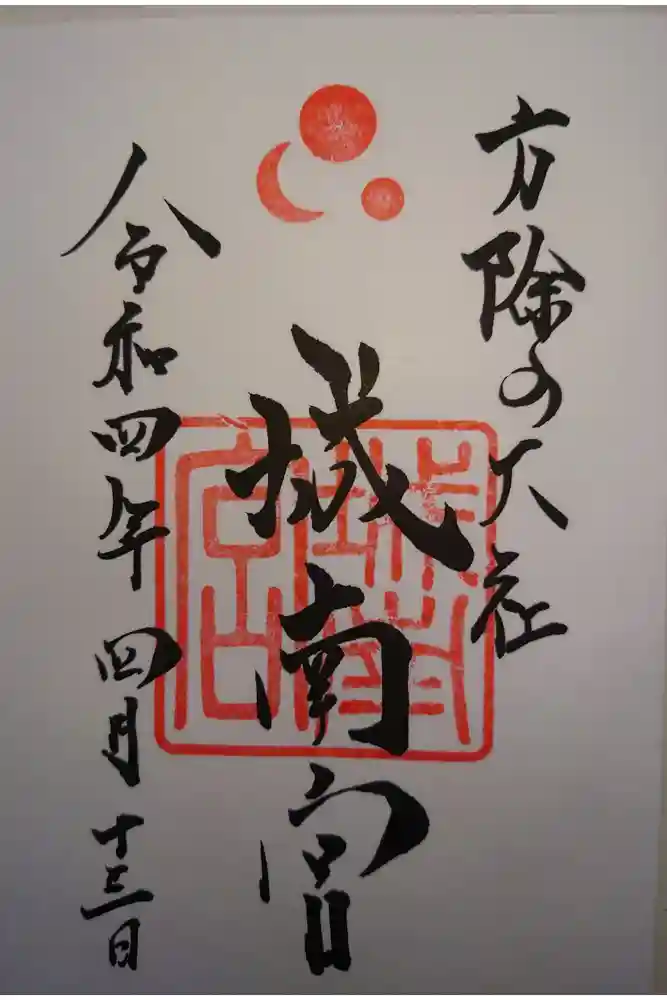 方除の大社
城南宮
令和四年 四月十三日
城南宮